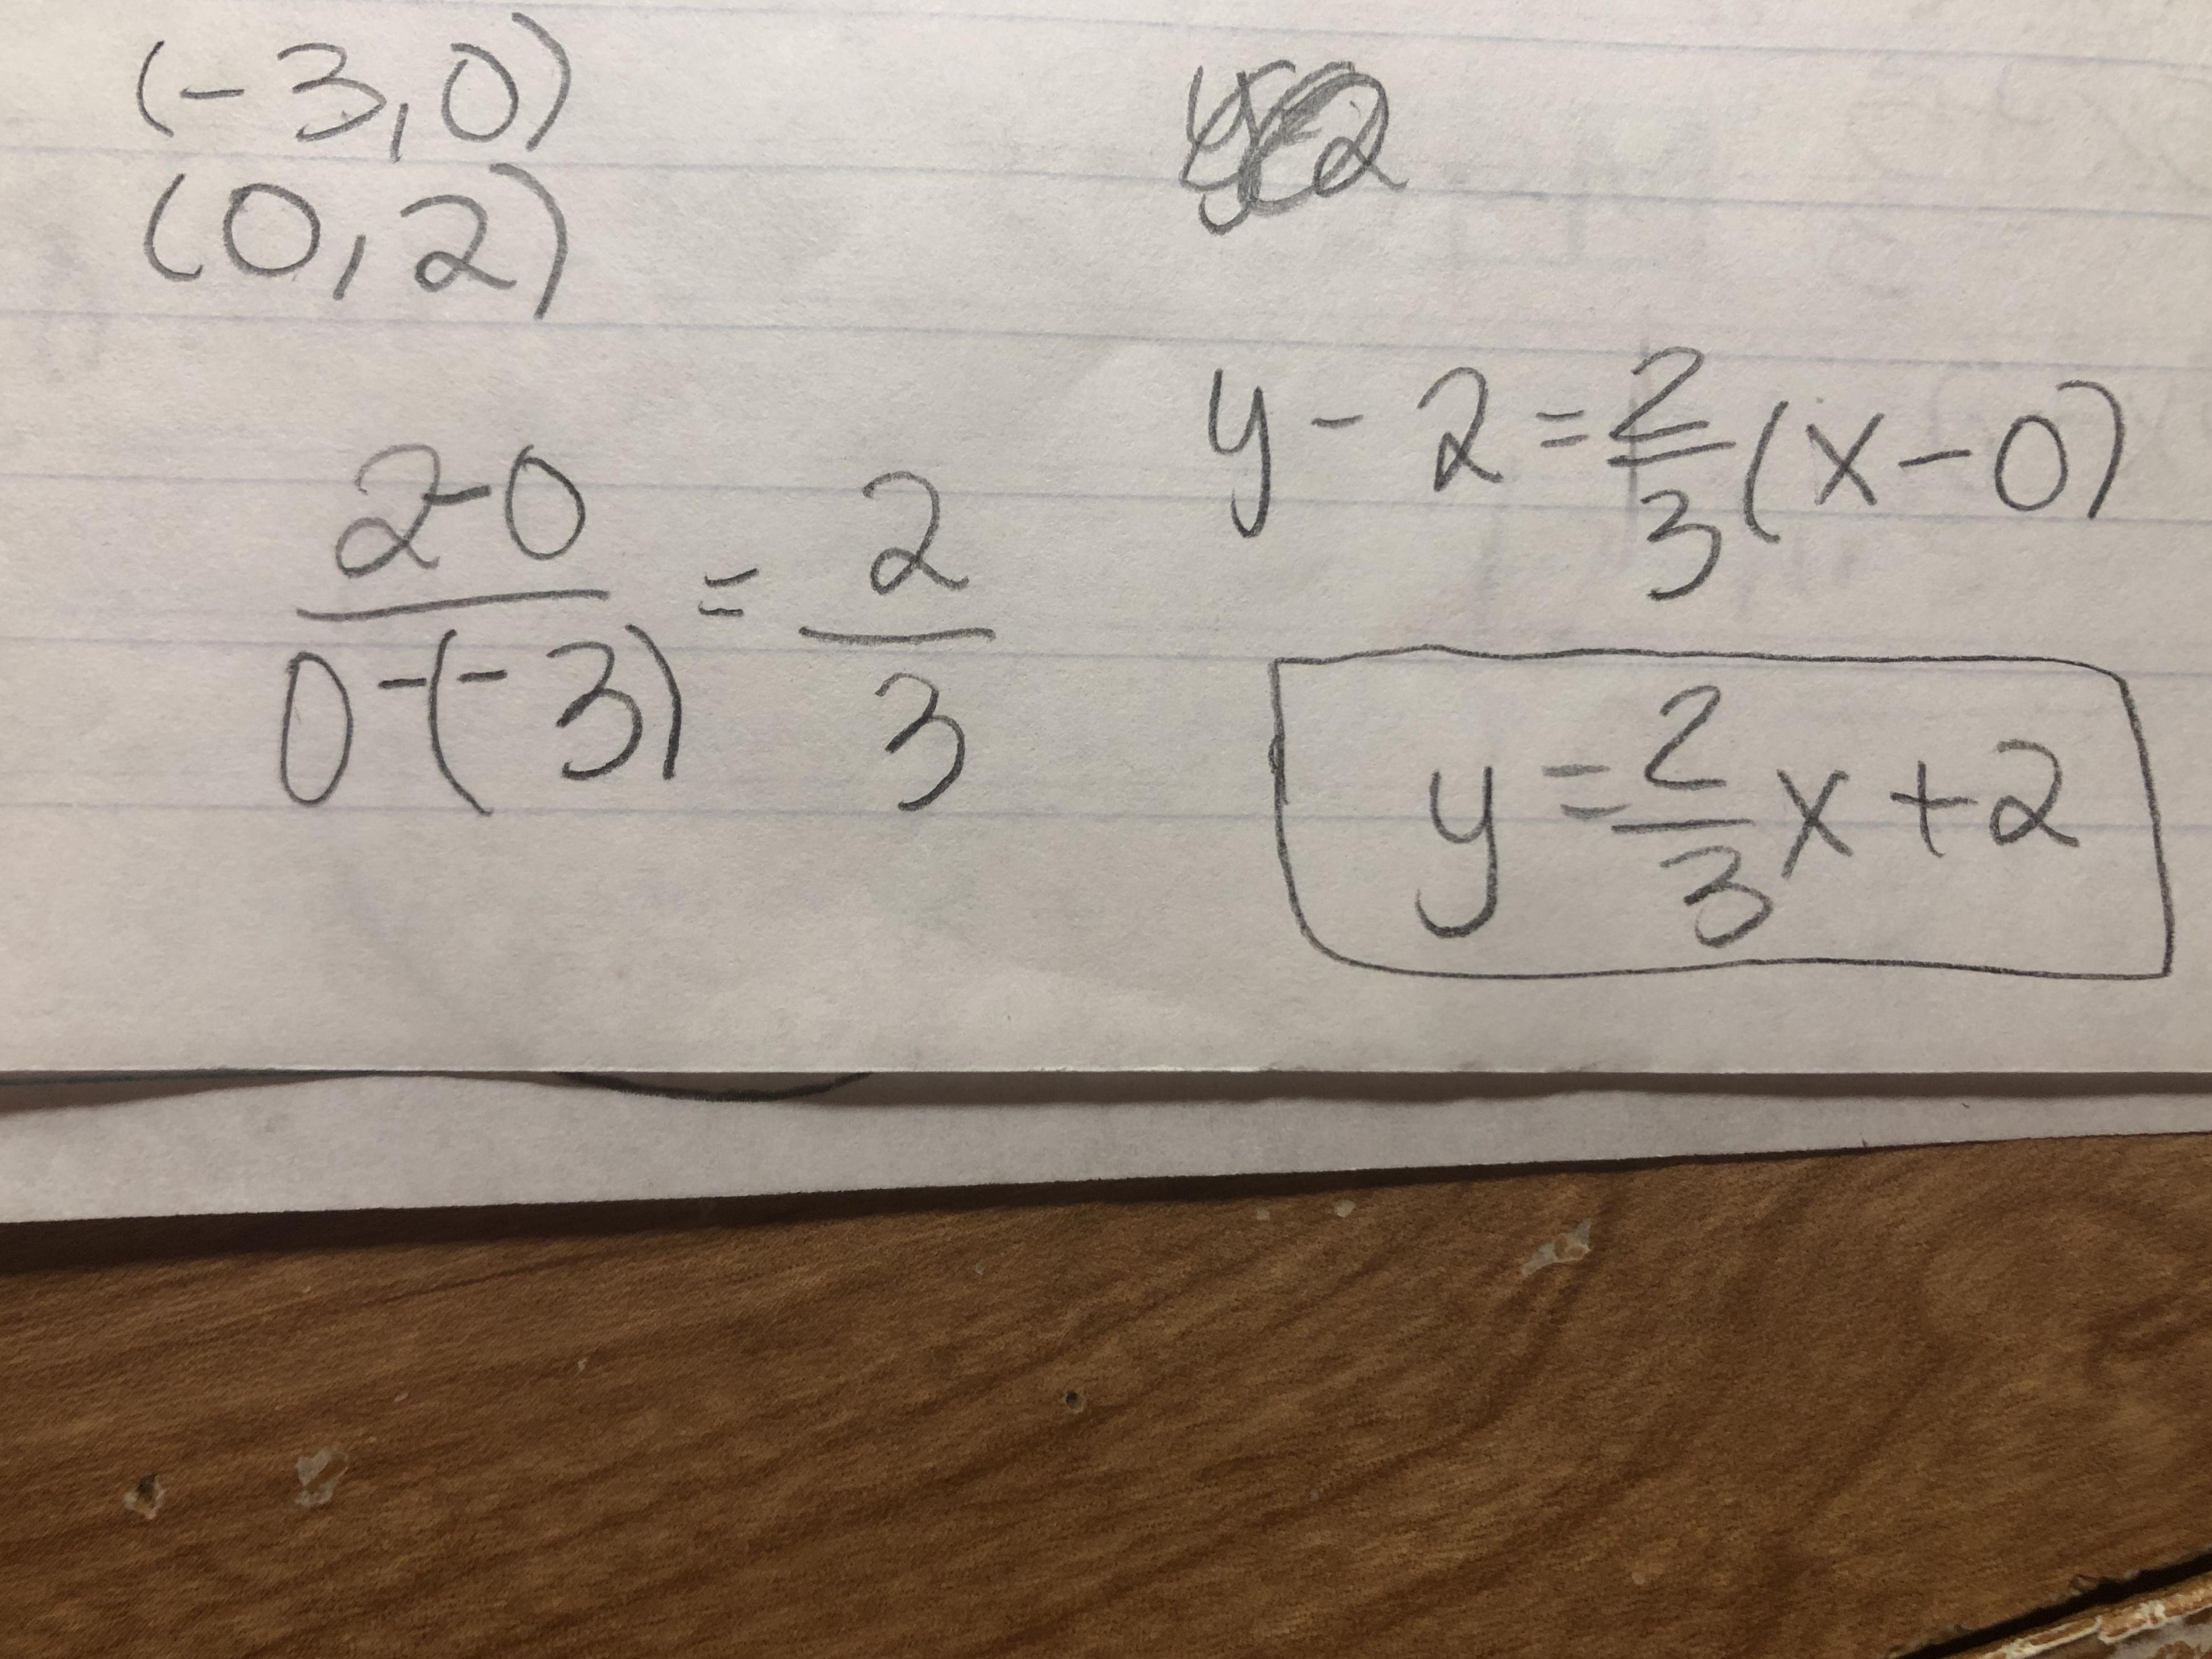 (-3,0)
(0,2)
2-0
0-(-3)
=
2
3
y-2=2/3(x-0)
y=2/3x+2